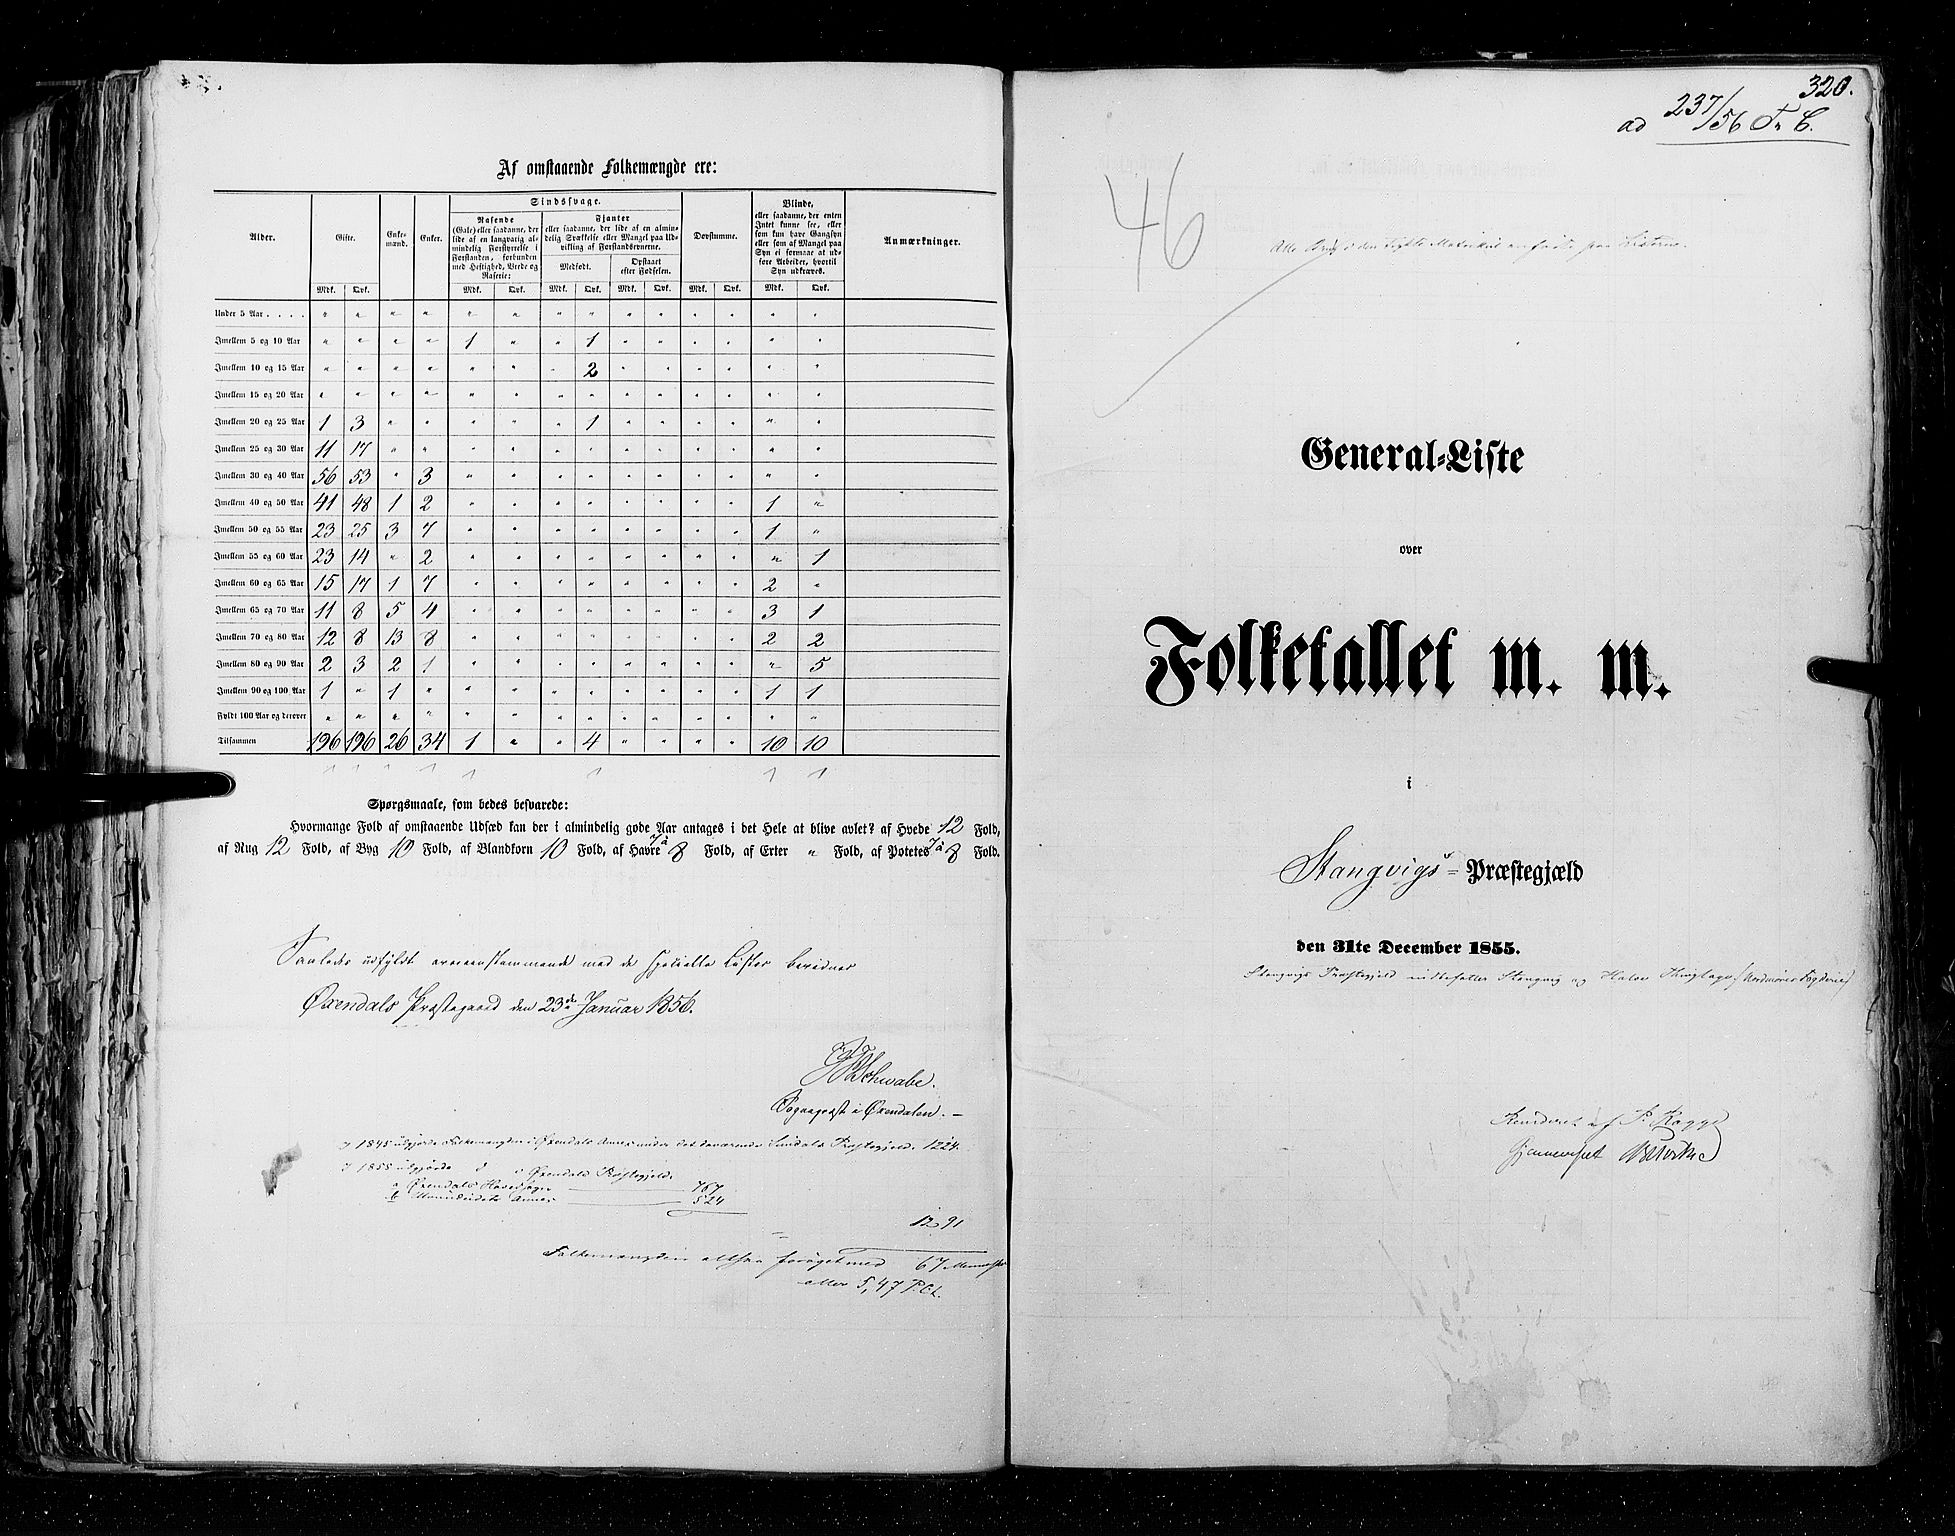 Af omstaaende Folkemængde ere:
Alder. Gifte. Enkemænd. Enker. Sindssvage. Døvstumme. Blinde, eller saadanne, der enten Intet kunne see, eller som kun have Gangsyn eller som af Mangel paa Syn ei formaae at udføre Arbeider, hvortil Syn udkræves. Anmærkninger.
Rasende (Gale) eller saadanne, der lide af en langvarig almindelig Forstyrrelse i Forstanden, forbunden med Heftighed, Vrede og Raserie:
Fjanter eller saadanne, der lide af en almindelig Svækkelse eller Mangel paa Udvikling af Forstandsevnerne.
Medfødt. Opstaaet efter Fødselen.
Mdk. Qvk. Mdk. Qvk. Mdk. Qvk. Mdk. Qvk. Mdk. Qvk. Mdk. Qvk.
Under 5 Aar . . . . " " " " " " " " " " " " " "
Imellem 5 og 10 Aar " " " " 1 " " 1 " " " " " "
Imellem 10 og 15 Aar " " " " " " " 2 " " " " " "
Imellem 15 og 20 Aar " " " " " " " " " " " " " "
Imellem 20 og 25 Aar 1 3 " " " " " 1 " " " " " "
Imellem 25 og 30 Aar 11 17 " " " " " " " " " " " "
Imellem 30 og 40 Aar 56 53 " 3 " " " " " " " " " "
Imellem 40 og 50 Aar 41 48 1 2 " " " " " " " " 1 "
Imellem 50 og 55 Aar 23 25 3 7 " " " " " " " " 1 "
Imellem 55 og 60 Aar 23 14 " 2 " " " " " " " " " 1
Imellem 60 og 65 Aar 15 17 1 7 " " " " " " " " 2 "
Imellem 65 og 70 Aar 11 8 5 4 " " " " " " " " 3 1
Imellem 70 og 80 Aar 12 8 13 8 " " " " " " " " 2 2
Imellem 80 og 90 Aar 2 3 2 1 " " " " " " " " " 5
Imellem 90 og 100 Aar 1 " 1 " " " " " " " " " 1 1
Fyldt 100 Aar og derover " " " " " " " " " " " " " "
Tilsammen 196 196 26 34 1 " " 4 " " " " 10 10
Spørgsmaale, som bedes besvarede:
Hvormange Fold af omstaaende Udsæd kan der i almindelig gode Aar antages i det Hele at blive avlet? af Hvede 12 Fold,
af Rug 12 Fold, af Byg 10 Fold, af Blandkorn 10 Fold, af Havre 7 à 8 Fold, af Erter " Fold, af Poteter 7 à 8 Fold.
Saaledes udfyldt overeenstemmende med de specielle Lister bevidner
Øxendals Præstegaard den 23de Januar 1856.
Schwabe.
Sognepræst i Øxendalen. —
I 1845 udgjorde Folkemængden i Øxendals Annex under det daværende Sundals Præstegjeld. 1224.
I 1855 udgjorde d i Øxendals Præstegjeld.
a Øxendals Hovedsogn 767
b Annex 524
1291
Folkemængden altsaa forøget med 67 Mennesker
eller 5,47 P.Ct.
320.
ad 237/56 F. C.
46
General-Liste
over
Folketallet m. m.
i
Stangvigs Præstegjæld
den 31te December 1855.
Stangvigs Præstegjeld indbefatter Stangvig og Halse Thinglage (Nordmøres Fogderie)
Revideret af P. Rogge
Gjennemseet